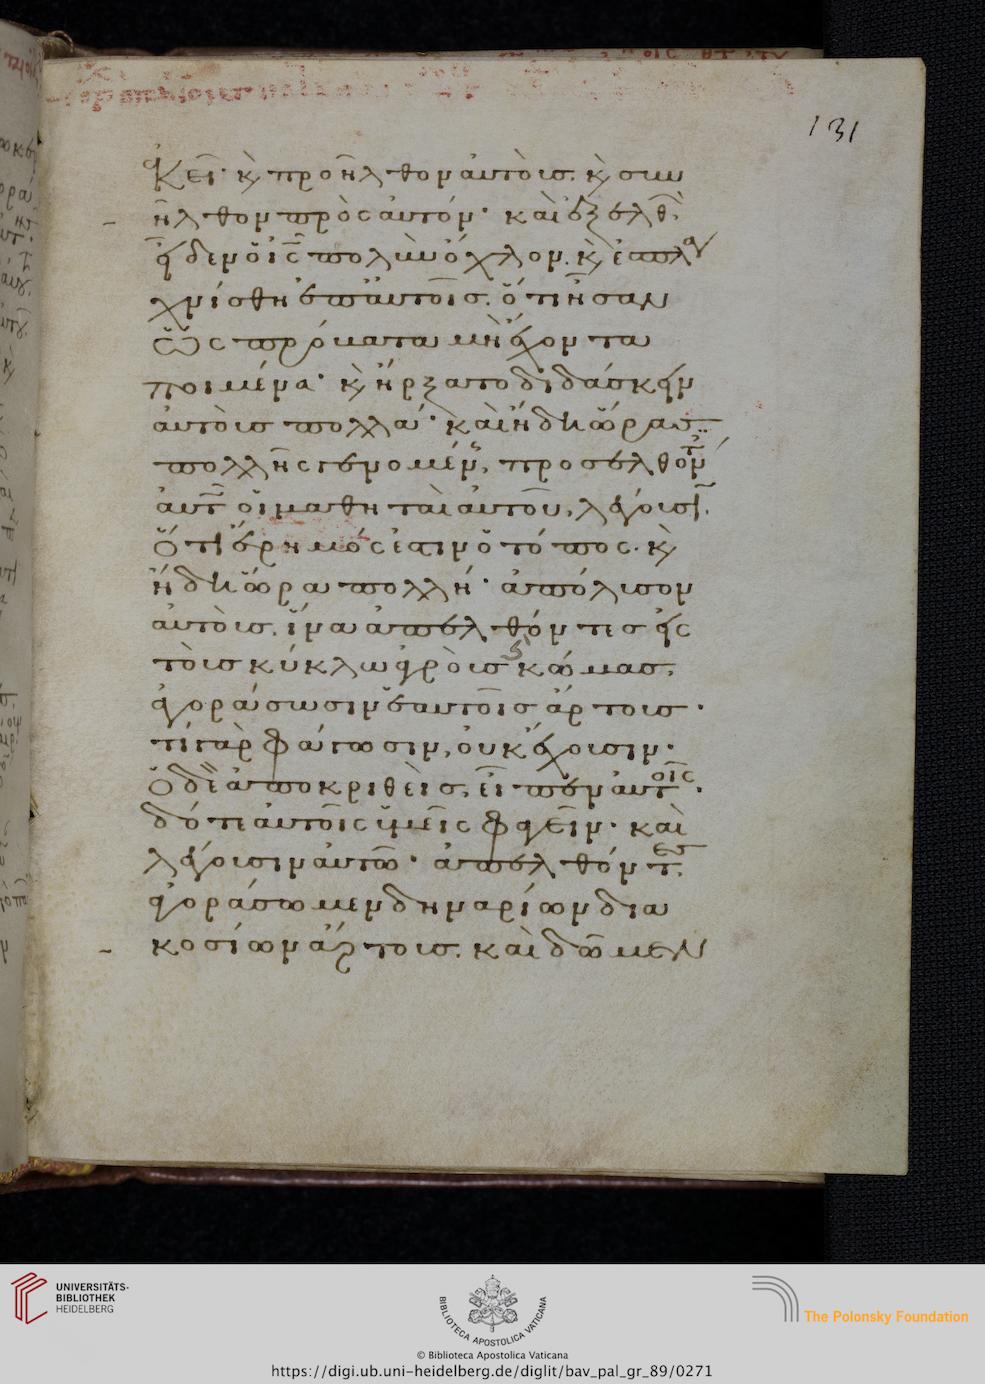 131
ἐκεῖ· κ προῆλθον αὐτοὺς. κ συν
ῆλθον πρὸς αὐτόν· καὶ ἐξελθ
εἶδεν ὁ ις πολὺν ὄχλον. κ ἐσπλα
χνίσθη ἐπ αὐτοῖς. ὅτι ἦσαν
ὡς πρόβατα μὴ ἔχοντα
ποιμένα· κ ἤρξατο διδάσκειν
αὐτοὺς πολλά· καὶ ἤδη ὥρας
πολλῆς γενομέν, προσελθόντ
αὐτ οἱ μαθηταὶ αὐτοῦ, λέγουσι.
ὅτι ἔρημός ἐστιν ὁ τόπος. κ
ἤδη ὥρα πολλή· ἀπόλυσον
αὐτοὺς. ἵνα ἀπελθόντες εἰς
τοὺς κύκλω ἀγροὺς κ κώμας,
ἀγοράσωσιν ἑαυτοῖς ἄρτους·
τί γὰρ φάγωσιν, οὐκ ἔχουσιν·
ὁ δὲ ἀποκριθεὶς, εἶπεν αὐτοῖς·
δότε αὐτοῖς ὑμεῖς φαγεῖν· καὶ
λέγουσιν αὐτῶ· ἀπελθόντες
ἀγοράσωμεν δηναρίων δια
κοσίων ἄρτους. καὶ δῶμεν
UNIVERSITÄTS-
BIBLIOTHEK
HEIDELBERG
BIBLIOTECA APOSTOLICA VATICANA
The Polonsky Foundation
© Biblioteca Apostolica Vaticana
https://digi.ub.uni-heidelberg.de/diglit/bav_pal_gr_89/0271